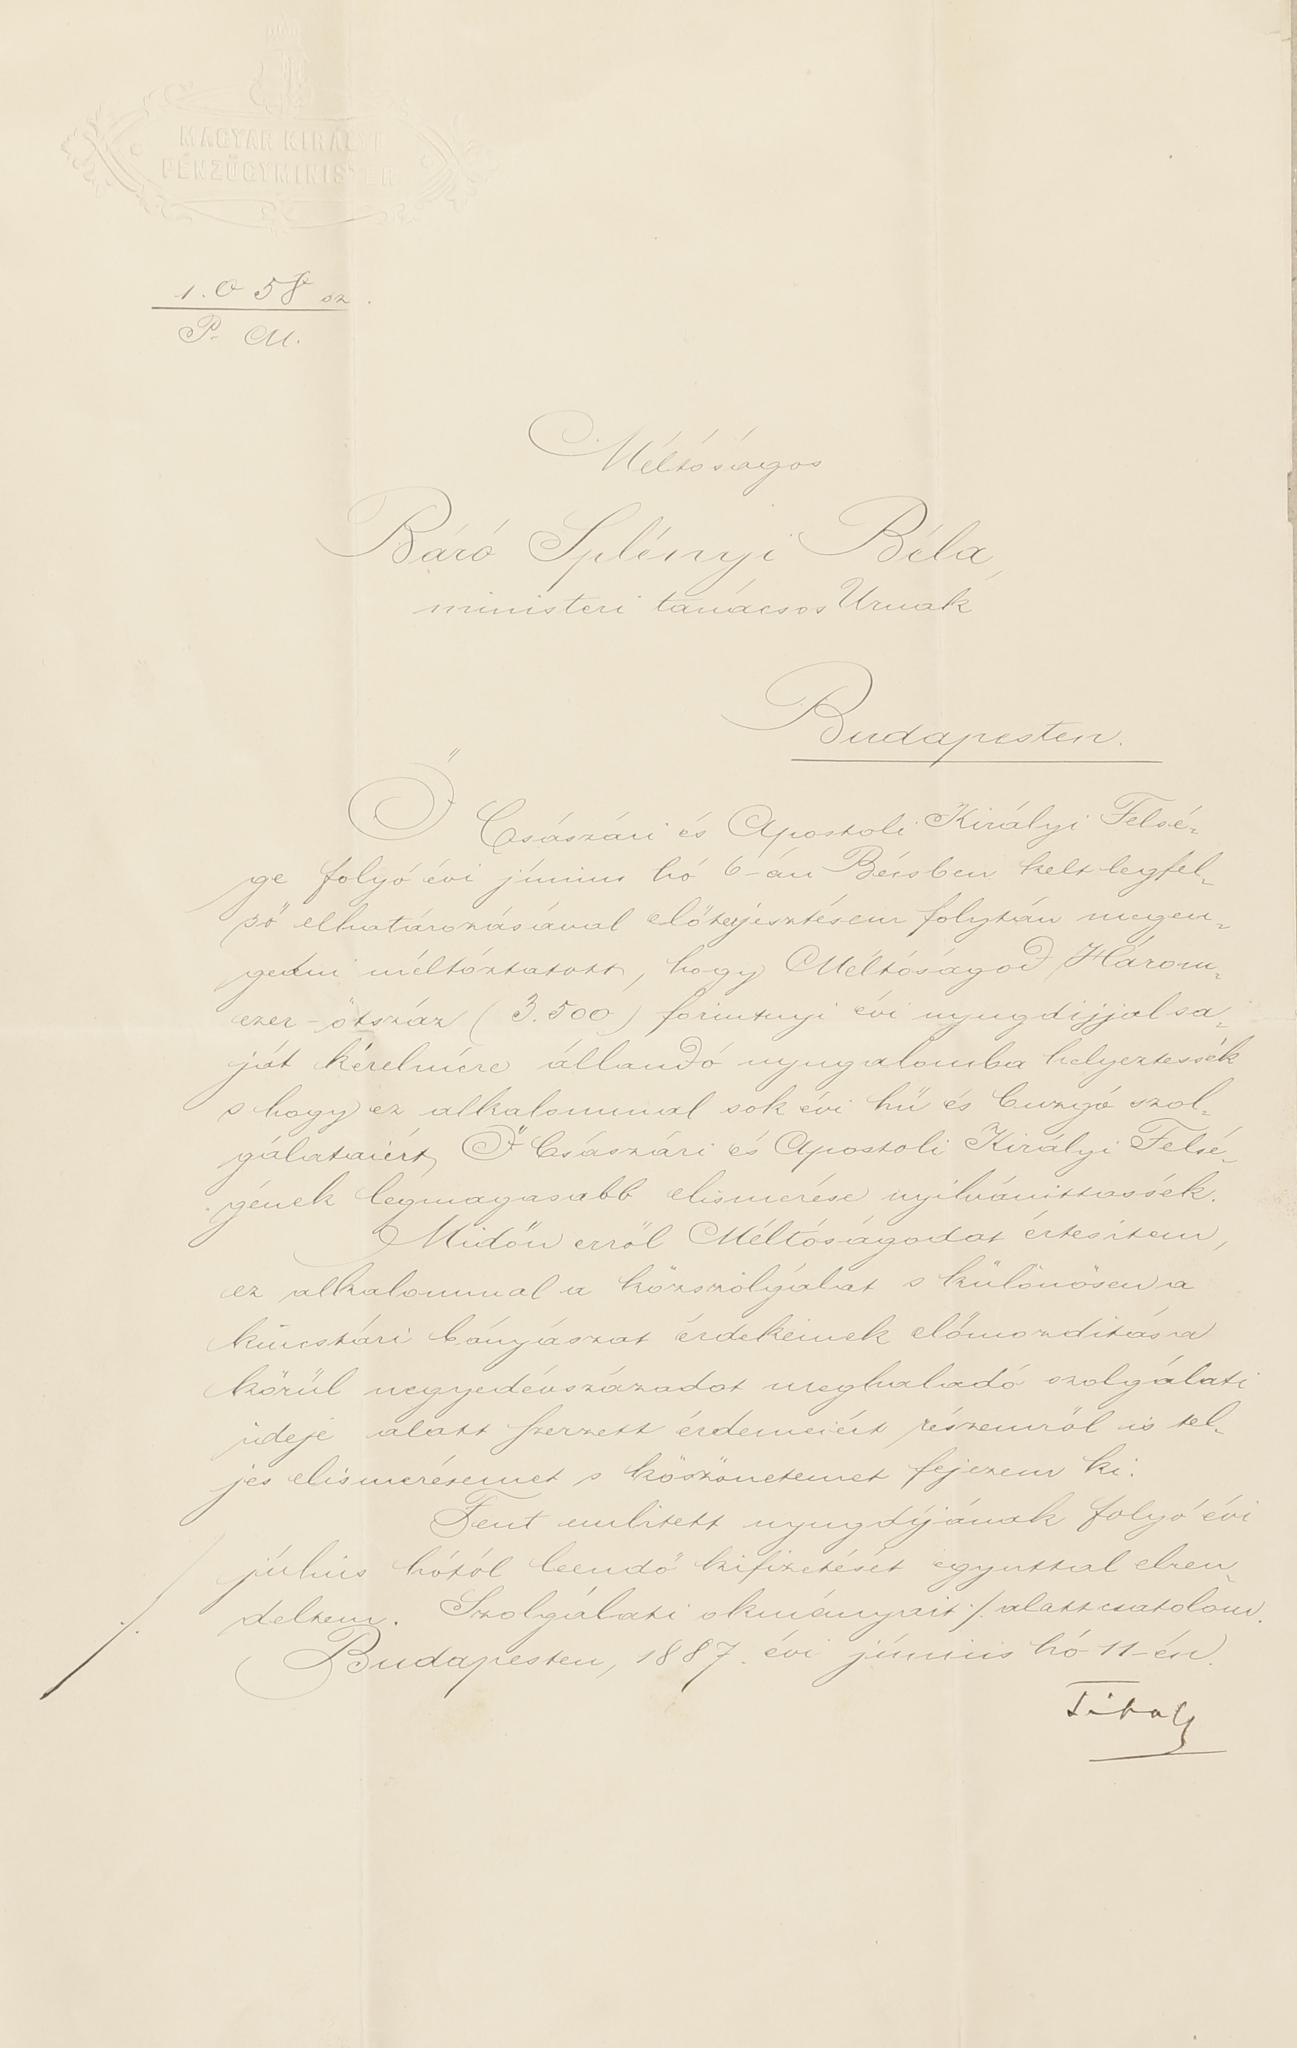 MAGYAR KIRÁLYI
PÉNZÜGYMINISTER
1.058 sz.
P. M.
Méltóságos
Báró Splényi Béla,
ministeri tanácsos Urnak
Budapesten.
Ő Császári és Apostoli Királyi Felsé-
ge folyó évi június hó 6-án Bécsben kelt legfel-
ső elhatározásával előterjesztésem folytán megen-
gedni méltóztatott, hogy Méltóságod Három-
ezer-ötszáz (3.500) forintnyi évi nyugdijjal sa-
ját kérelmére állandó nyugalomba helyeztessék
s hogy ez alkalommal sok évi hű és buzgó szol-
gálataiért, Ő Császári és Apostoli Királyi Felsé-
gének legmagasabb elismerése nyilvánittassék.
Midőn erről Méltóságodat értesítem,
ez alkalommal a közszolgálat s különösen a
kincstári bányászat érdekeinek előmozditása
körül negyedévszázadot meghaladó szolgálati
ideje alatt szerzett érdemeiért részemről is tel-
jes elismerésemet s köszönetemet fejezem ki.
Fent emlitett nyugdíjának folyó évi
július hótól leendő kifizetését egyuttal elren-
deltem. Szolgálati okmányait ·/. alatt csatolom.
Budapesten, 1887. évi június hó 11-én.
·/.